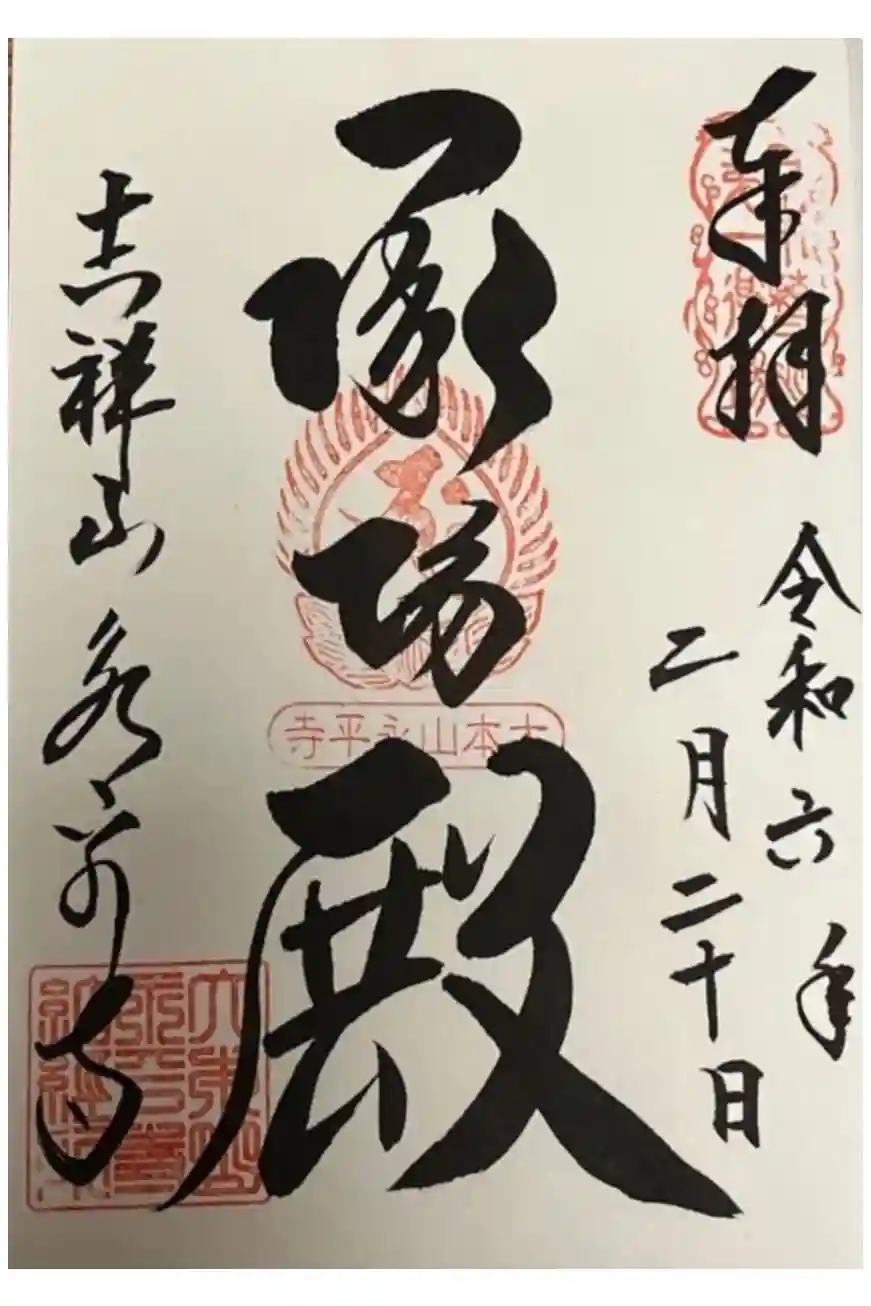 奉拝
令和六年
二月二十日
承陽殿
大本山永平寺
吉祥山永平寺